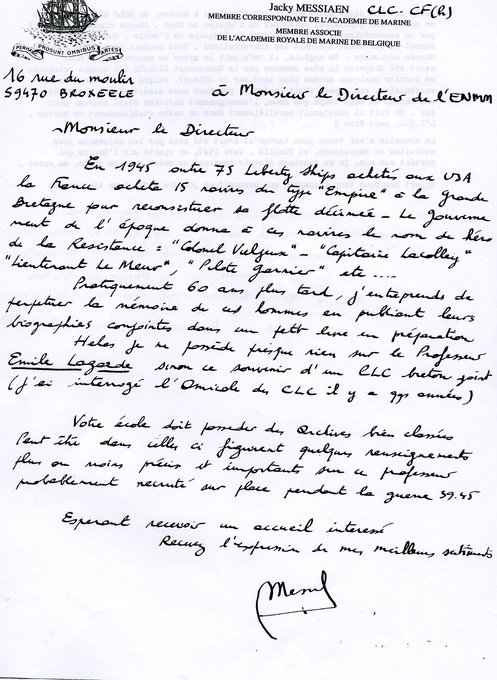 Jacky MESSIAEN CLC. CF(h)
MEMBRE CORRESPONDANT DE L'ACADEMIE DE MARINE
MEMBRE ASSOCIE
DE L'ACADEMIE ROYALE DE MARINE DE BELGIQUE
PROSUNT OMNIBUS ARTES
16 rue du moulin
59470 BROXEELE
à Monsieur le Directeur de l'ENMM
Monsieur le Directeur
En 1945 outre 75 Liberty Ships achetés aux USA
la France acheta 15 navires du type "Empire" à la Grande
Bretagne pour reconstituer sa flotte décimée - Le Gouverne
ment de l'époque donna à ces navires le nom de héros
de la Resistance = "Colonel Vieljeux" - "Capitaine Lacolley"
"Lieutenant Le Meur", "Pilote Garnier" etc ....
Pratiquement 60 ans plus tard, j'entreprends de
perpetuer la mémoire de ces hommes en publiant leurs
biographies conjointes dans un petit livre en préparation
Helas je ne possède presque rien sur le Professeur
Emile Lagarde sinon ce souvenir d'un CLC breton joint
(j'ai interrogé l'Amicale des CLC il y a qqs années)
Votre école doit posseder des Archives bien classées
Peut être dans celles ci figurent quelques renseignements
plus ou moins précis et importants sur ce professeur
probablement recruté sur place pendant la guerre 39.45
Esperant recevoir un accueil interessé
Recevez l'expression de mes meilleurs sentiments